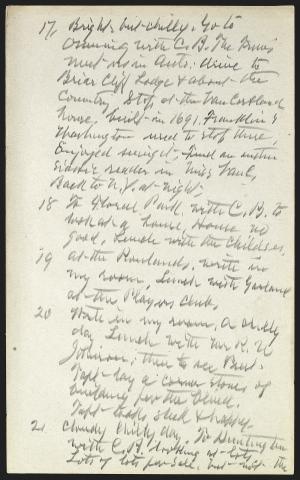 17 Bright, but chilly. Go to
Ossining with C.B. The
meet us in Auto: drive to
Briar Cliff Lodge & about the
Country. Stop at the Van Cortland
house, built in 1691. Franklin &
Washington used to stop there,
Enjoyed seeing it, find an enthu
siastic reader in Miss Van C.
Back to N.Y. at night.
18 To Floral Park with C.B. to
look at a house. House no
good. Lunch with the Childses,
19 at the Rowlands, write in
my room, Lunch with Garland
at the Players club.
20 Write in my room, a chilly
day. Lunch with Mr R. U
Johnson; then to see Pres.
Taft lay a corner stone of
building for the blind.
Taft looks sleek & happy.
21 Cloudy chilly day. To Huntington
with C.B. looking at lots,
Lots of lots for sale, but not the